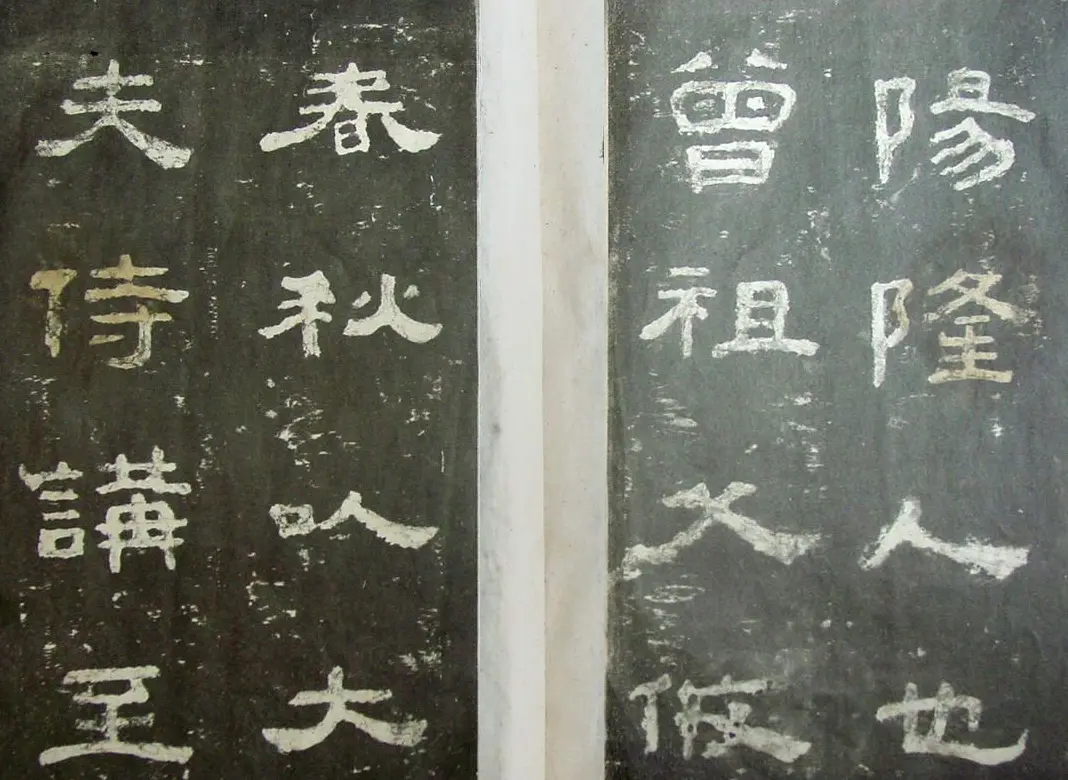 陽隆人也
曾祖父攸
春秋以大
夫侍講至